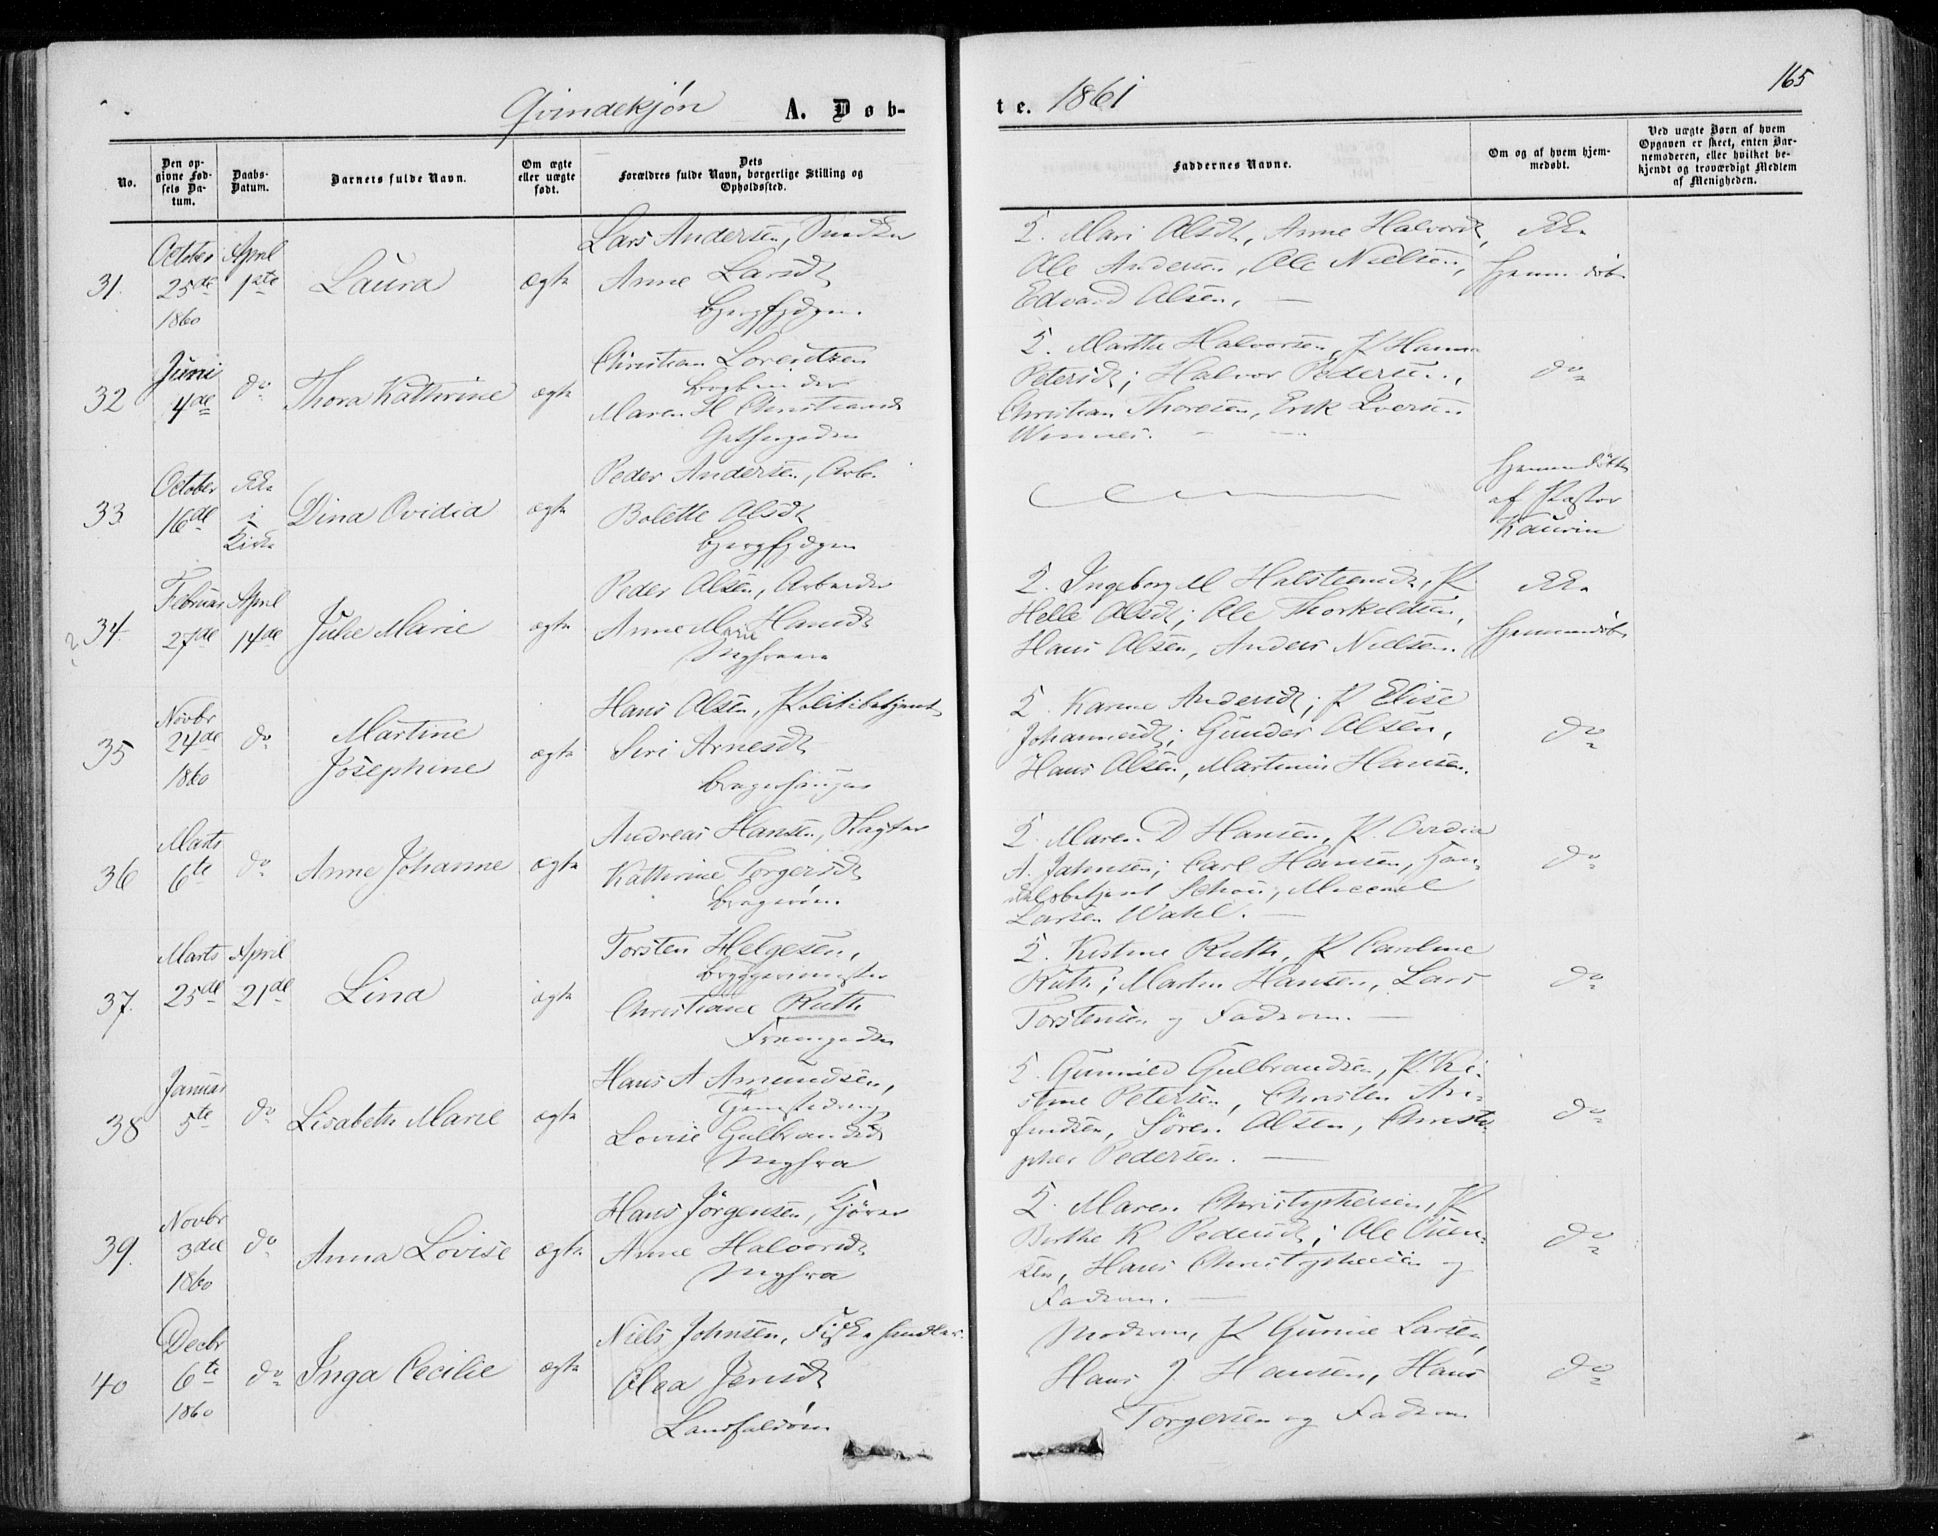 165
Qvindekjøn A. Døb-
te. 1861
No.
Den op-
givne Fød-
sels Da-
tum.
Daabs-
Datum.
Barnets fulde Navn.
Om ægte
eller uægte
født.
Dets
Forældres fulde Navn, borgerlige Stilling og
Opholdssted.
Faddernes Navne.
Om og af hvem hjem-
medøbt.
Ved uægte Børn af hvem
Opgaven er skeet, enten Bar-
nemoderen, eller hvilket be-
kjendt og troværdigt Medlem
af Menigheden.
31.
October
25de
1860
April
1ste
Laura
ægte
Lars Andersen,
Anne Larsdt
Bjergfjdgen
5. Mari Olsdt, Anne Halvorsdt,
Ole Andersen, Ole Nielsen,
Edvard Olsen.
Ikke
hjemmedøbt
32
Juni
4de
do
Thora Kathrine
ægte
Christian Lorentzen
Bogbinder
Maren H Christiansdt
5. Marthe Halvorsen, P Hanna
Petersdt; Halvor Pedersen,
Christian Thoresen, Erik Iversen
Winnes.
do
33
October
16de
Ikke
i
Kirke
Dina Ovidia
ægte
Peder Andersen, Arb.
Bolette Olsdt
Bjergfjdgen
Hjemmedøbt
af Pastor
Kaurin
34.
Februar
27de
April
14de
Julie Marie
ægte
Peder Olsen, Arbeider
Anne Marie Hansdt
5. Ingeborg M Halsteensdt, P.
Helle Olsdt; Ole Thorkildsen,
Hans Olsen, Anders Nielsen.
Ikke
hjemmedøbt
35
Novbr
24de
1860
do
Martine
Josephine
ægte
Hans Olsen, Politibetjent
Siri Arnesdt
5. Karine Andersdt; P Elise
Johannesdt; Gunder Olsen,
Hans Olsen, Martinius Hansen.
do
36
Marts
6te
do
Anne Johanne
ægte
Andreas Hansen, Slagter
Kathrine Torgersdt
Bragerøen
5. Maren D Hansen, P. Ovidia
A. Jahnsen; Carl Hansen, Han-
delsbetjent Schou,
Larsen Wahl.
do
37.
Marts
25de
April
21de
Lina
ægte
Torsten Helgesen,
Bryggerimester
Christiane Ruth
5. Kistine Ruth, P Caroline
Ruth; Martin Hansen, Lars
Torstensen og Faderen.
do
38
Januar
5te
do
Lisabeth Marie
ægte
Hans A Amundsen,
Lovise Gulbrandsdt
5. Gunnild Gulbrandsen, P. Ki-
stine Petersen, Christen An-
findsen, Søren Olsen, Christo-
pher Pedersen.
do
39.
Novbr
3die
1860
do
Anna Lovise
ægte
Hans Jörgensen, Kjører
Anne Halvorsdt
5. Maren Christophersen, P
Berthe K Pedersdt; Ole Oven-
sen, Hans Christophersen og
Faderen.
do
40
Decbr
6te
1860
do
Inga Cecilie
ægte
Niels Johnsen, Fiskehandler
Olea Jensdt
Landfaldøen
Moderen, P Gunine Larsen,
Hans J Hansen, Hans
Torgersen og Faderen
do